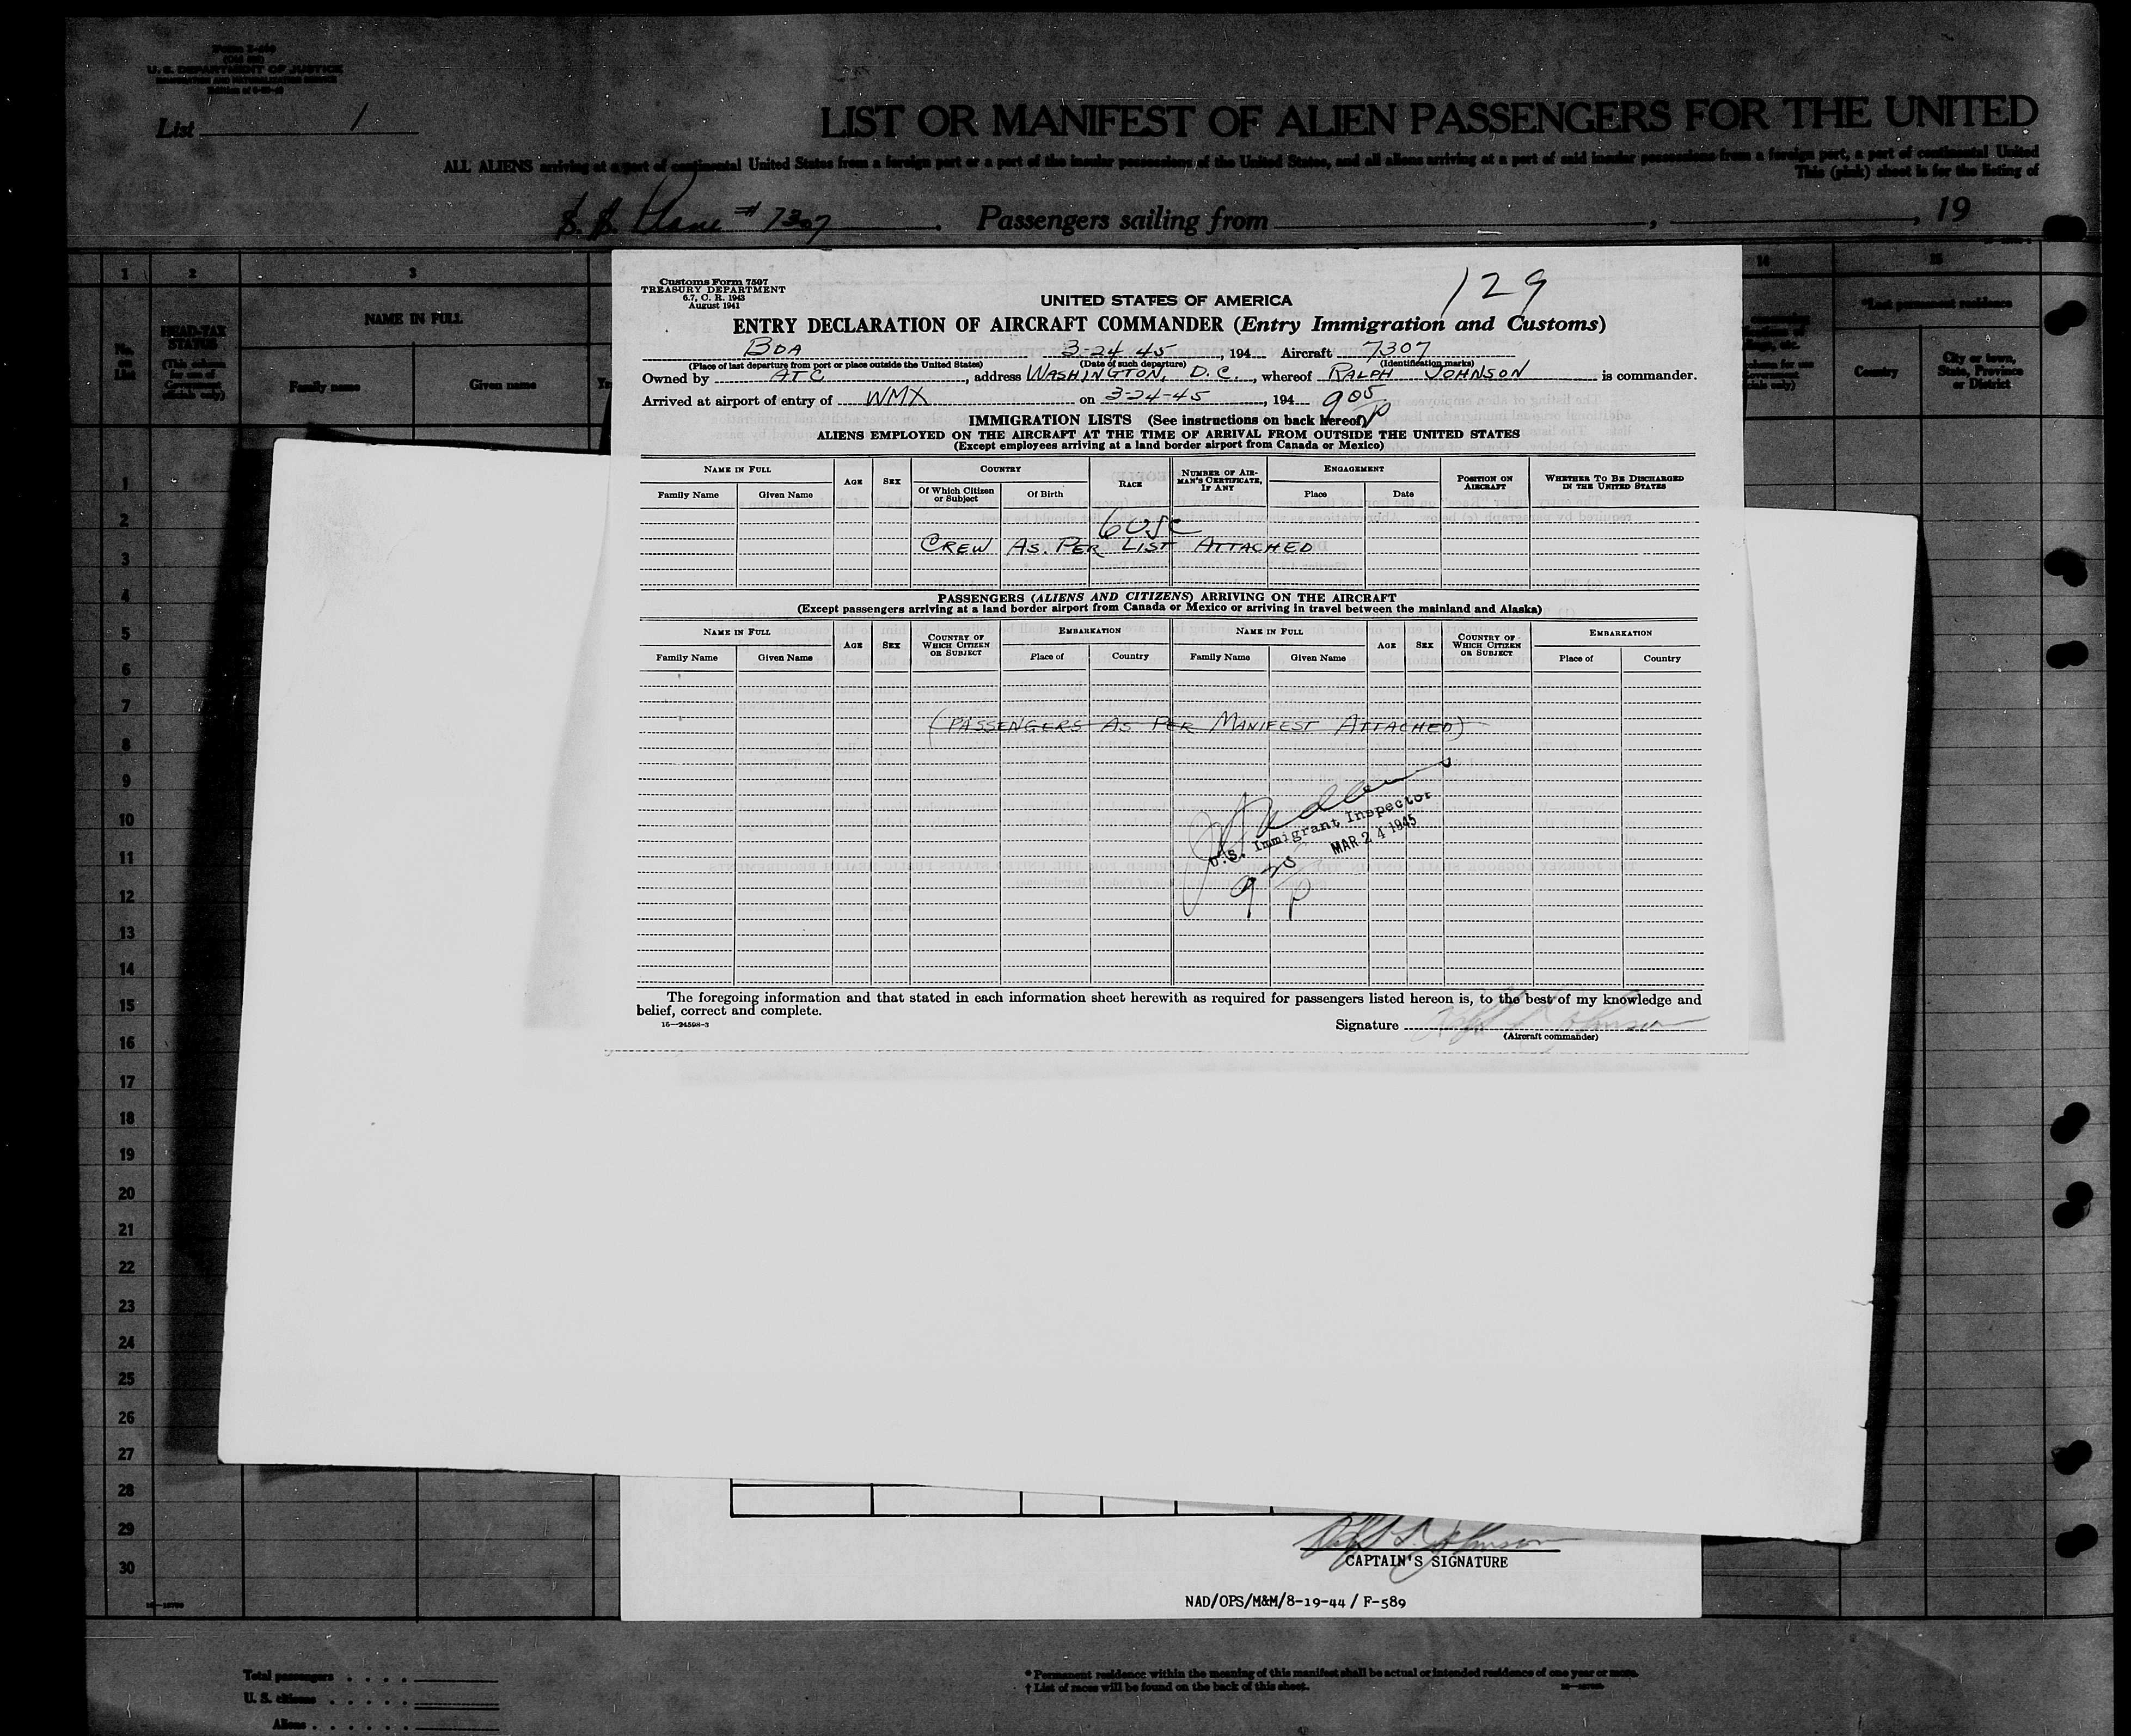 U. S. DEPARTMENT OF JUSTICE
List 1
LIST OR MANIFEST OF ALIEN PASSENGERS FOR THE UNITED
ALL ALIENS arriving at a port of continental United States from a foreign port or a port of the insular possessions of the United States, and all aliens arriving at a port of said insular possessions from a foreign port, a port of continental United
This (pink) sheet is for the listing of
S. S. Plane # 7307 . Passengers sailing from , , 19
1 2 3 14 15
No. on List
HEAD-TAX STATUS
(This column for use of Government officials only)
NAME IN FULL
Family name Given name
*Last permanent residence
Country
City or town, State, Province or District
Customs Form 7507
TREASURY DEPARTMENT
6.7, C. R. 1943
August 1941
129
UNITED STATES OF AMERICA
ENTRY DECLARATION OF AIRCRAFT COMMANDER (Entry Immigration and Customs)
BDA 3-24 45, 194 Aircraft 7307
(Place of last departure from port or place outside the United States) (Date of such departure) (Identification marks)
Owned by ATC, address WASHINGTON, D.C., whereof RALPH JOHNSON is commander.
Arrived at airport of entry of WMX on 3-24-45, 194 9 05 P
IMMIGRATION LISTS (See instructions on back hereof)
ALIENS EMPLOYED ON THE AIRCRAFT AT THE TIME OF ARRIVAL FROM OUTSIDE THE UNITED STATES
(Except employees arriving at a land border airport from Canada or Mexico)
NAME IN FULL AGE SEX COUNTRY RACE NUMBER OF AIRMAN'S CERTIFICATE, IF ANY ENGAGEMENT POSITION ON AIRCRAFT WHETHER TO BE DISCHARGED IN THE UNITED STATES
Family Name Given Name Of Which Citizen or Subject Of Birth Place Date
6 USC
CREW AS PER LIST ATTACHED
PASSENGERS (ALIENS AND CITIZENS) ARRIVING ON THE AIRCRAFT
(Except passengers arriving at a land border airport from Canada or Mexico or arriving in travel between the mainland and Alaska)
NAME IN FULL AGE SEX COUNTRY OF WHICH CITIZEN OR SUBJECT EMBARKATION NAME IN FULL AGE SEX COUNTRY OF WHICH CITIZEN OR SUBJECT EMBARKATION
Family Name Given Name Place of Country Family Name Given Name Place of Country
(PASSENGERS AS PER MANIFEST ATTACHED)
U.S. Immigrant Inspector
MAR 24 1945
The foregoing information and that stated in each information sheet herewith as required for passengers listed hereon is, to the best of my knowledge and
belief, correct and complete.
16—24598-3
Signature Ralph L Johnson
(Aircraft commander)
1
2
3
4
5
6
7
8
9
10
11
12
13
14
15
16
17
18
19
20
21
22
23
24
25
26
27
28
29
30
Ralph L. Johnson
CAPTAIN'S SIGNATURE
NAD/OPS/M&M/8-19-44 / F-589
Total passengers
U. S. citizens
Aliens
* Permanent residence within the meaning of this manifest shall be actual or intended residence of one year or more.
† List of races will be found on the back of this sheet.